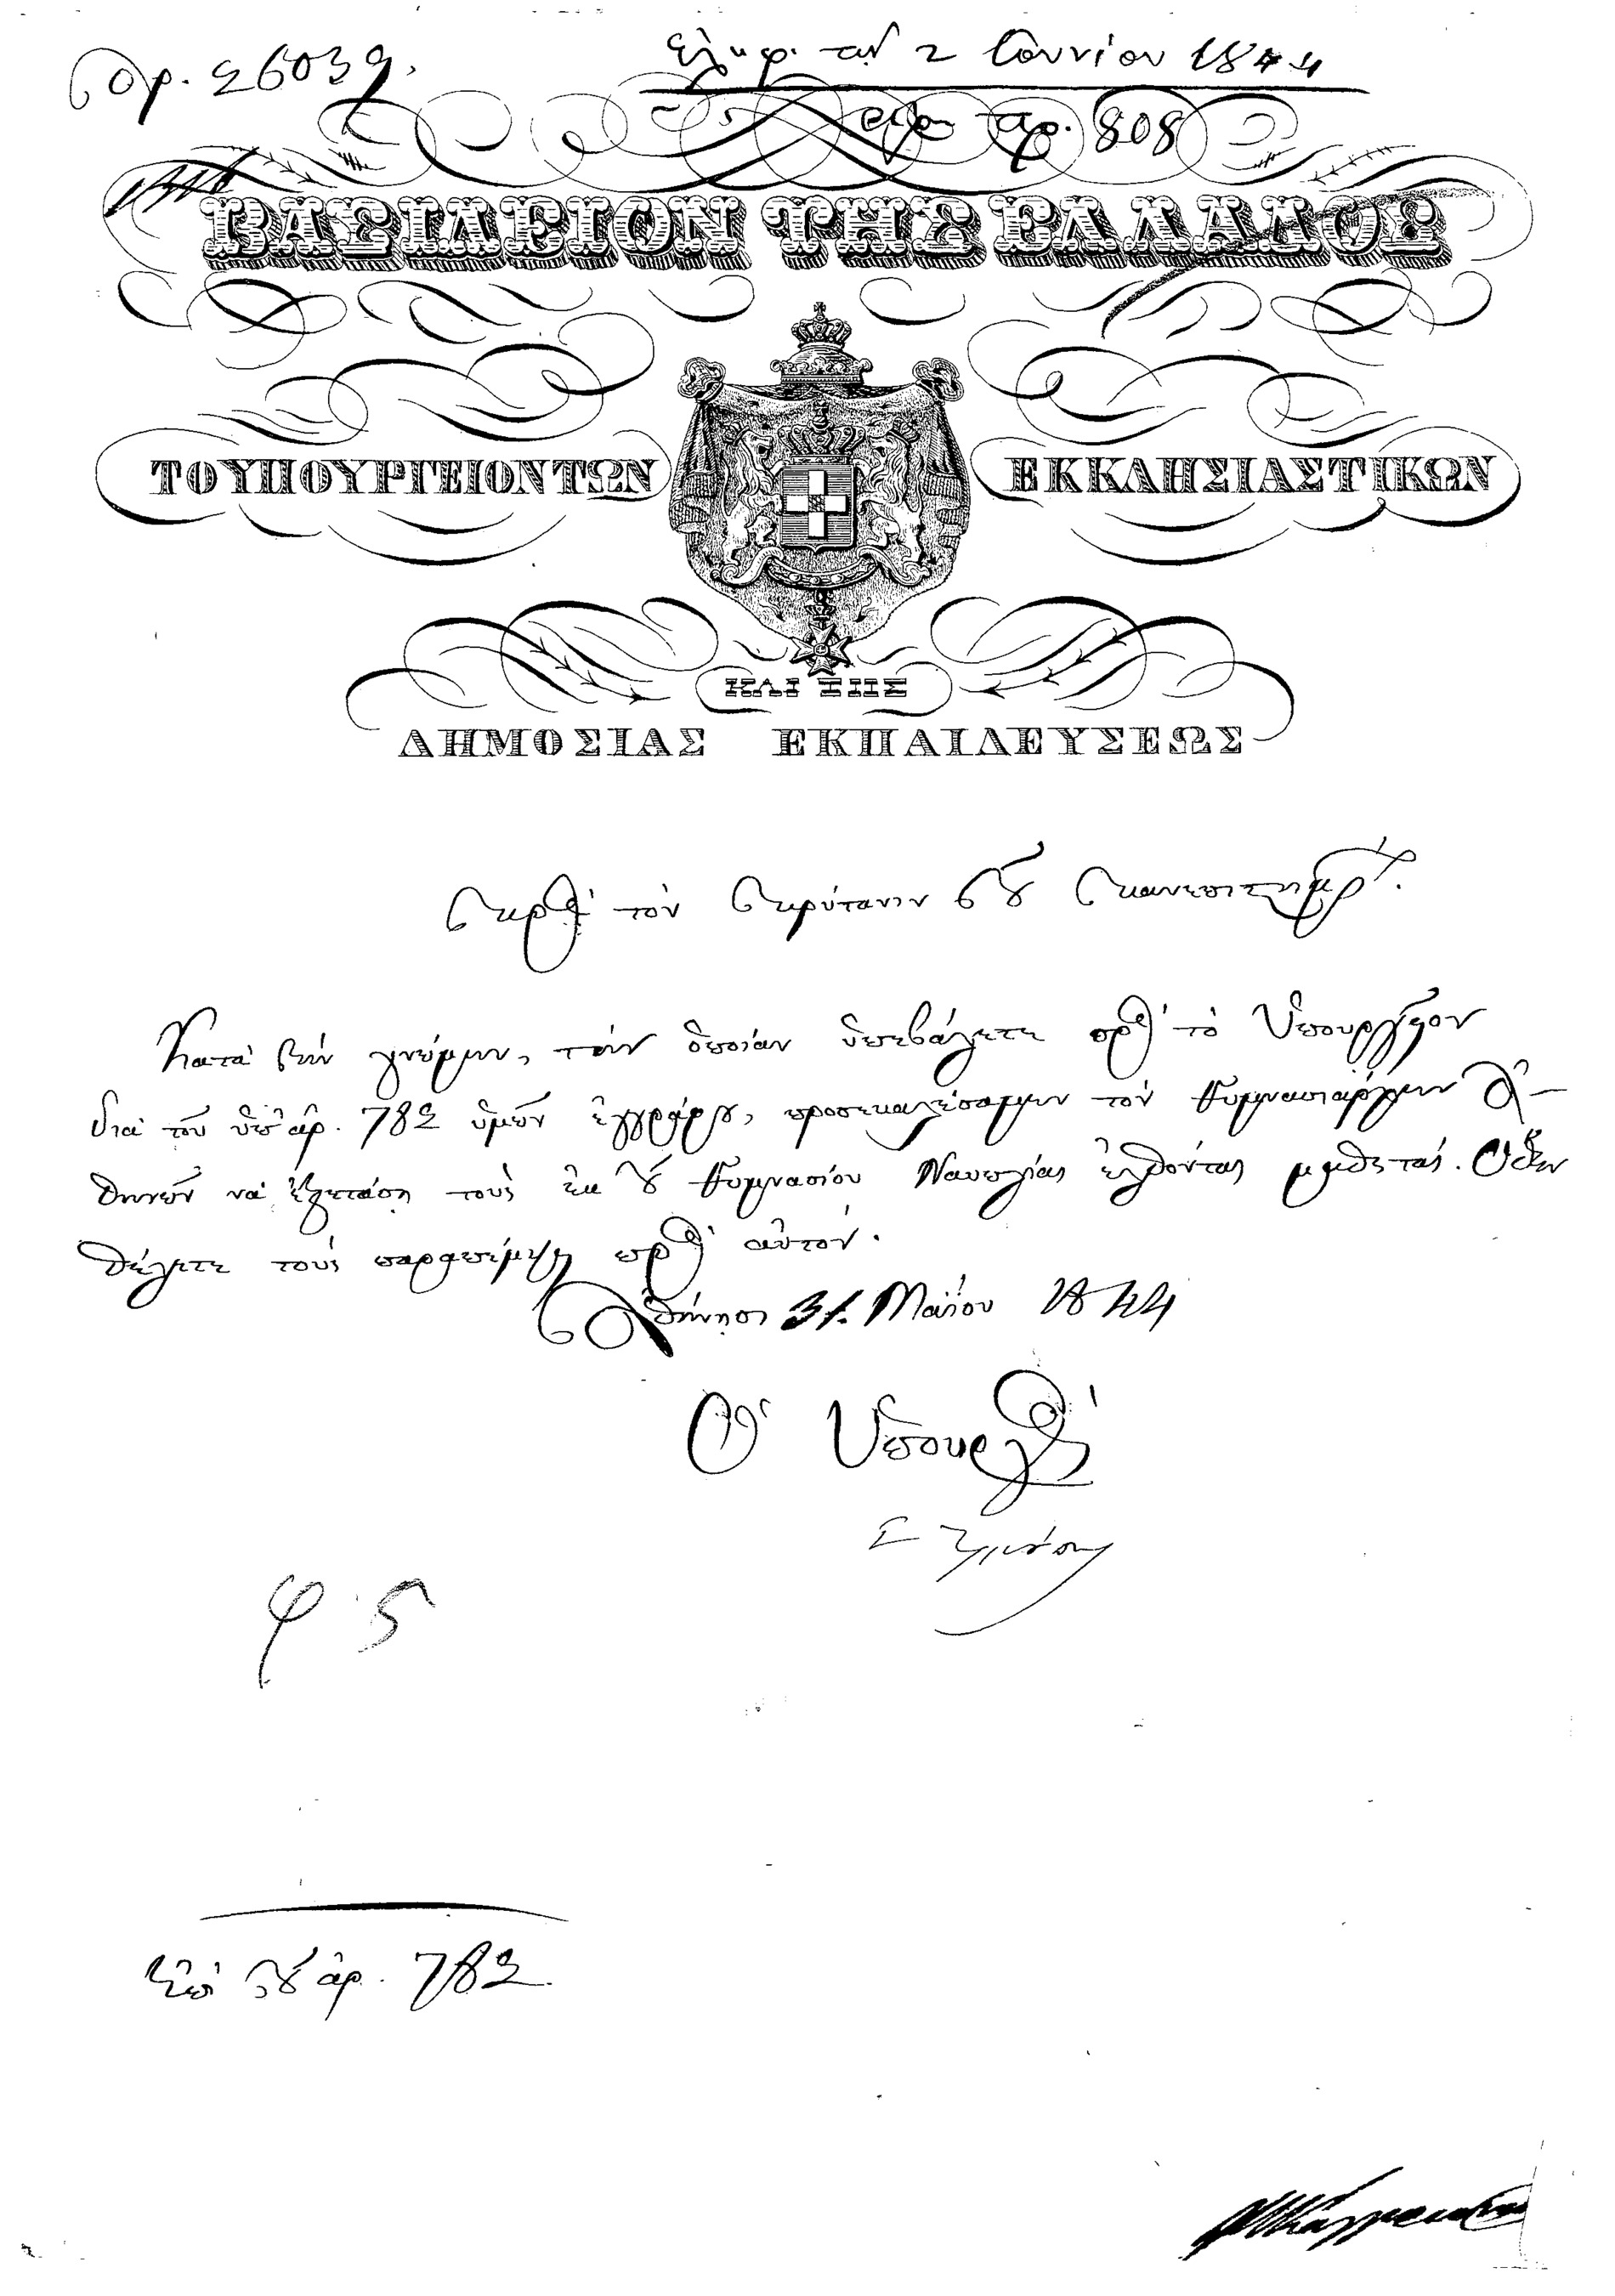 ἀρ. 26039.
Ἐλήφ. τὴν 2 Ἰουνίου 1844
ἀρ. 808
ΒΑΣΙΛΕΙΟΝ ΤΗΣ ΕΛΛΑΔΟΣ
ΤΟ ΥΠΟΥΡΓΕΙΟΝ ΤΩΝ ΕΚΚΛΗΣΙΑΣΤΙΚΩΝ
ΚΑΙ ΤΗΣ
ΔΗΜΟΣΙΑΣ ΕΚΠΑΙΔΕΥΣΕΩΣ
Πρὸς τὸν Πρύτανιν τοῦ Πανεπιστημίου.
Κατὰ τὴν γνώμην, τὴν ὁποίαν ὑπεβάλετε πρὸς τὸ Ὑπουργεῖον
διὰ τοῦ ὑπ' ἀρ. 782 ὑμῶν ἐγγράφου, προσεκαλέσαμεν τὸν Γυμνασιάρχην Ἀ-
θηνῶν νὰ ἐξετάσῃ τοὺς ἐκ τοῦ Γυμνασίου Ναυπλίας ἐλθόντας μαθητάς. Ὅθεν
θέλετε τοὺς παραπέμψῃ πρὸς αὐτόν.
Ἀθήνησι 31. Μαΐου 1844
Ὁ Ὑπουργὸς
φ. 5
Ἐπὶ τοῦ ἀρ. 782.